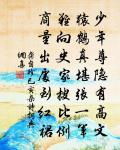 少年尊隐有高文
猿鹤真堪张一军
难向史家搜比例
商量出处到红裙
龚自珍己亥杂诗词典
网集